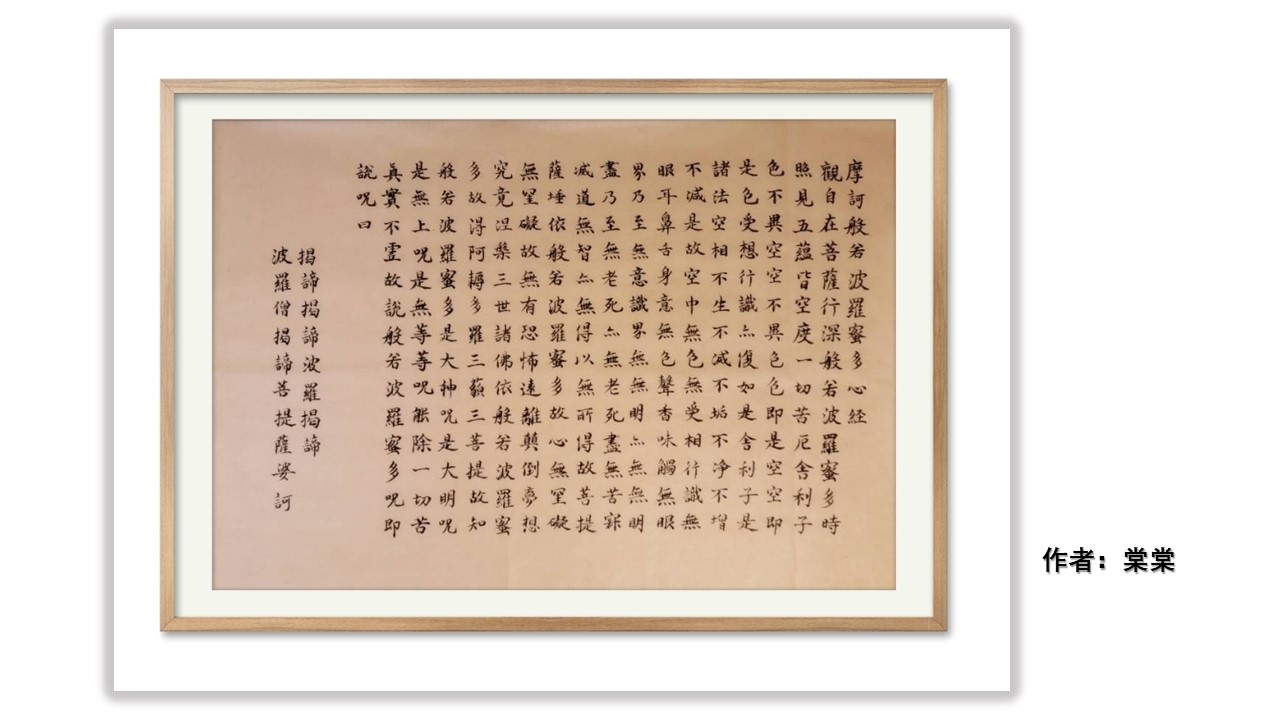 摩訶般若波羅蜜多心経
觀自在菩薩行深般若波羅蜜多時
照見五蘊皆空度一切苦厄舍利子
色不異空空不異色色即是空空即
是色受想行識亦復如是舍利子是
諸法空相不生不滅不垢不淨不增
不減是故空中無色無受相行識無
眼耳鼻舌身意無色聲香味觸無眼
界乃至無意識界無無明亦無無明
盡乃至無老死亦無老死盡無苦寂
滅道無智亦無得以無所得故菩提
薩埵依般若波羅蜜多故心無罣礙
無罣礙故無有恐怖遠離顛倒夢想
究竟涅槃三世諸佛依般若波羅蜜
多故得阿耨多羅三藐三菩提故知
般若波羅蜜多是大神呪是大明呪
是無上呪是無等等呪能除一切苦
真實不虛故說般若波羅蜜多呪即
說呪曰
揭諦揭諦波羅揭諦
波羅僧揭諦菩提薩婆訶
作者：棠棠